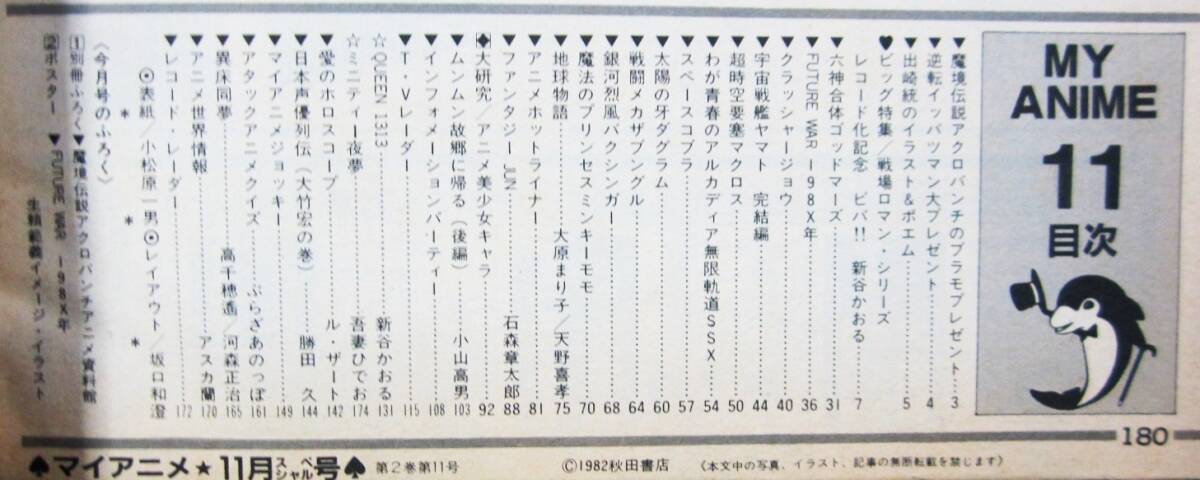 MY
ANIME
11
目次
▼魔境伝説アクロバンチのプラモプレゼント 3
▼逆転イッパツマン大プレゼント 4
▼出崎統のイラスト&ポエム 5
♥ビッグ特集/戦場ロマン・シリーズ
レコード化記念 ビバ!! 新谷かおる 7
▼六神合体ゴッドマーズ 31
▼FUTURE WAR 198X年 36
▼クラッシャージョウ 40
▼宇宙戦艦ヤマト 完結編 44
▼超時空要塞マクロス 50
▼わが青春のアルカディア無限軌道SSX 54
▼スペースコブラ 57
▼太陽の牙ダグラム 60
▼戦闘メカザブングル 64
▼銀河烈風バクシンガー 68
▼魔法のプリンセスミンキーモモ 70
▼地球物語 大原まり子/天野喜孝 75
▼アニメホットライナー 81
▼ファンタジーJUN 石森章太郎 88
◆大研究/アニメ美少女キャラ 92
▼ムンムン故郷に帰る(後編) 小山高男 103
▼インフォメーションパーティー 108
▼T・Vレーダー 115
☆QUEEN 1313 新谷かおる 131
☆ミニティー夜夢 吾妻ひでお 174
▼愛のホロスコープ ル・ザート 142
▼日本声優列伝(大竹宏の巻) 勝田 久 144
▼マイアニメジョッキー 149
▼アタックアニメクイズ ぶらざあのっぽ 161
▼異床同夢 高千穂遙/河森正治 165
▼アニメ世界情報 アスカ蘭 170
▼レコード・レーダー 172
⊙表紙/小松原一男⊙レイアウト/坂口和澄
* * *
《今月号のふろく》
1別冊ふろく▼魔境伝説アクロバンチアニメ資料館
2ポスター▼FUTURE WAR 198X年
生頼範義イメージ・イラスト
180
♠マイアニメ★11月スペシャル号♠ 第2巻第11号 ©1982秋田書店 〈本文中の写真、イラスト、記事の無断転載を禁じます〉